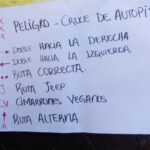 XXX PELIGRO - CRUCE DE AUTOPI
→ DOBLE HACIA LA DERECHA
← DOBLE HACIA LA IZQUIERDA
RUTA CORRECTA.
J RUTA JEEP
CV CIMARRONES VEGANOS
A RUTA ALTERNA.